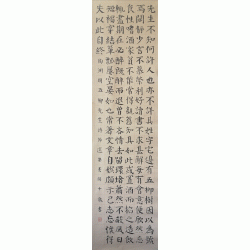 先生不知何許人也亦不詳其姓字宅邊有五柳樹因以為號
焉閑靜少言不慕榮利好讀書不求甚解每有會意便欣然忘
食性嗜酒家貧不能常得親舊知其如此或置酒而招之造飲
輒盡期在必醉既醉而退曾不吝情去留環堵蕭然不蔽風日
短褐穿結簞瓢屢空晏如也常著文章自娛頗示己志忘懷得
失以此自終